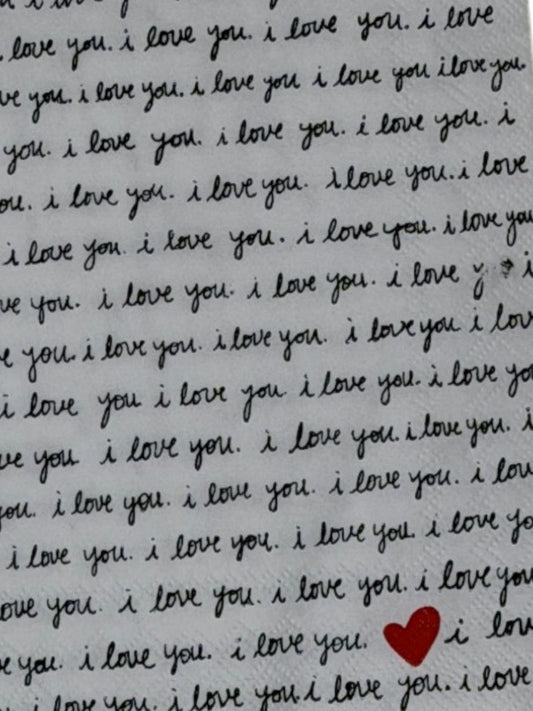 love you. i love you. i love you. i love
you. i love you. i love you i love you i love you.
you. i love you. i love you. i love you. i
i love you. i love you. i love you. i love
i love you. i love you. i love you. i love you
you. i love you. i love you. i love i
you. i love you. i love you. i love you i
i love you i love you i love you. i love
you i love you. i love you. i love you. i
i love you. i love you. i love you. i
i love you. i love you. i love you. i love
you. i love you. i love you. i love you
you. i love you. i love you. i
i love you. i love you. i love you. i love